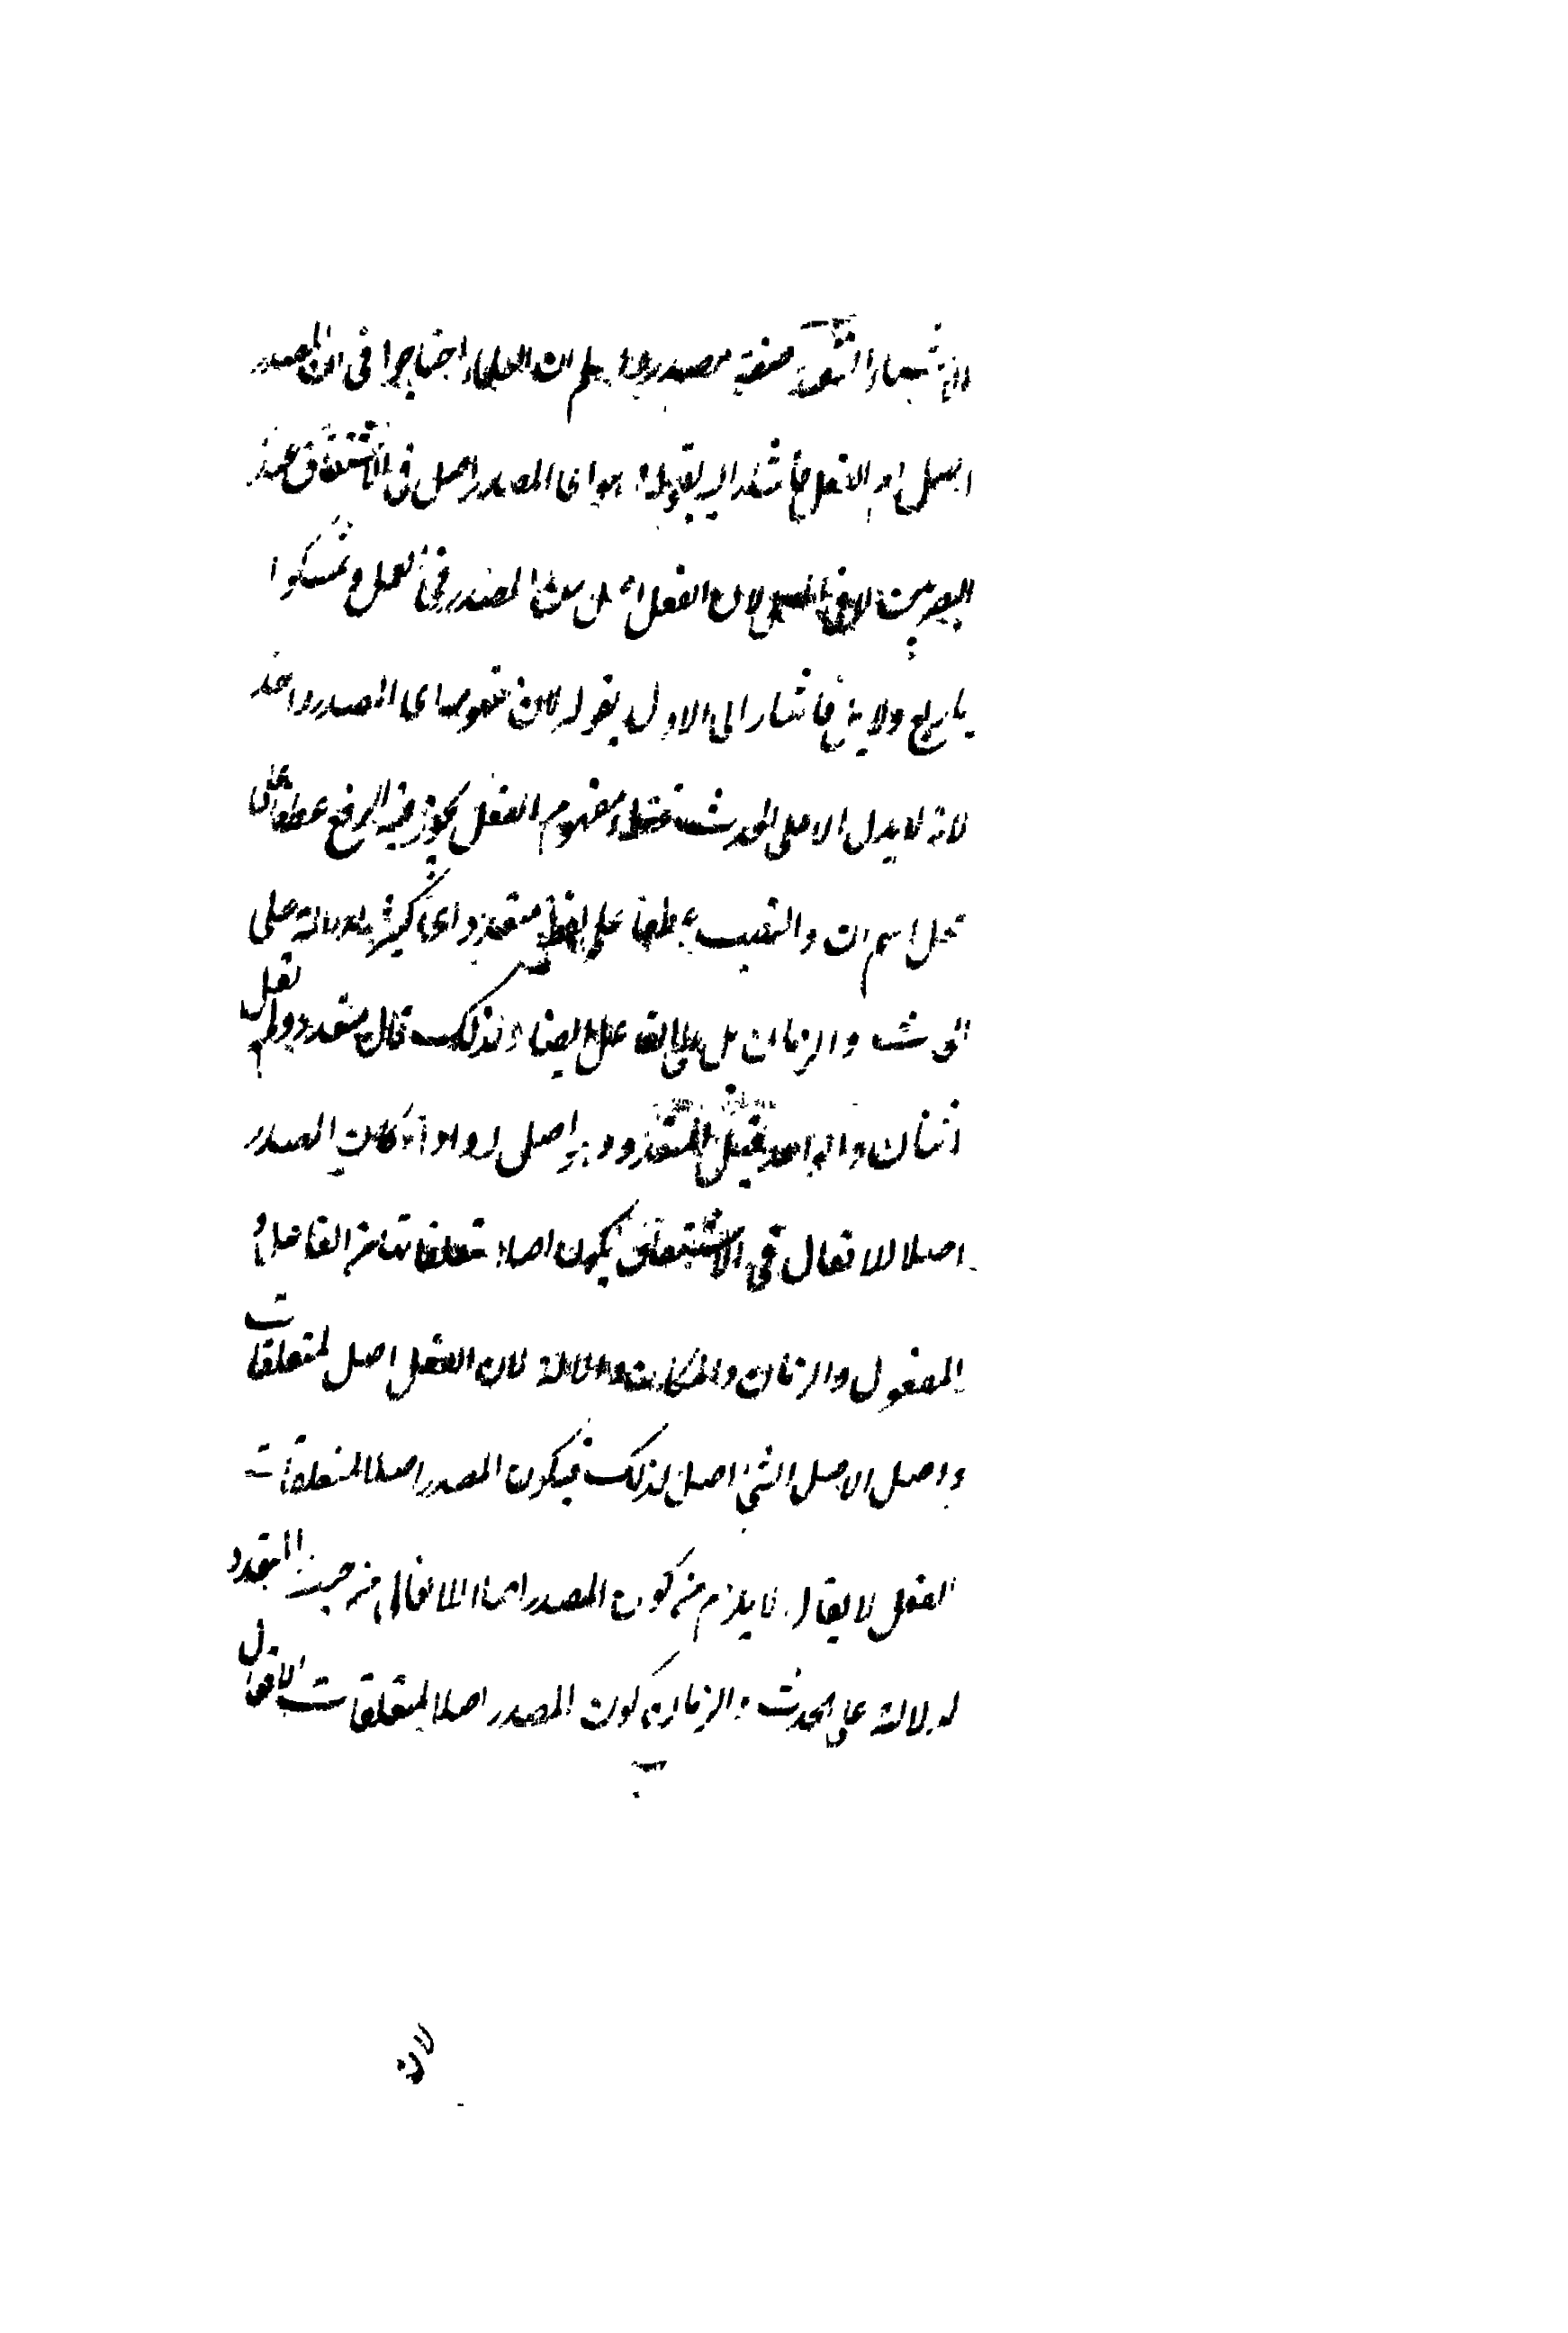 الاشياء المشتقة صفة مصدر واعلم ان العلماء اختلفوا في ان المصدر
اصل ام الفعل فاشار اليه بقوله وهو اى المصدر اصل فى الاشتقاق عند
البصريين لا فى العمل لان الفعل اصل من المصدر فى العمل وتمسكوا
باربع دلايل فاشار الى الاول بقوله لان مفهومه اى المصدر واحد
لانه لا يدل الا على الحدث فقط ومفهوم الفعل يجوز فيه الرفع عطفا على
محل اسم ان والنصب عطفا على لفظه متعدد اى كثير لدلالته على
الحدث والزمان بل على الفاعل ايضا ولذلك قال متعدد ولم يقل
اثنان والواحد قبل المتعدد اصل واذا كان المصدر
اصلا للافعال فى الاشتقاق يكون اصلا لمتعلقاته من الفاعل و
المفعول والزمان والمكان والالة لان الفعل اصل لمتعلقات
واصل الاصل الشئ اصل لذلك فيكون المصدر اصلا لمتعلقات
الفعل لا يقال لا يلزم من كون المصدر اصلا للافعال من حيث التعدد
لدلالته على الحدث والزمان كون المصدر اصلا لمتعلقات الافعال
لان